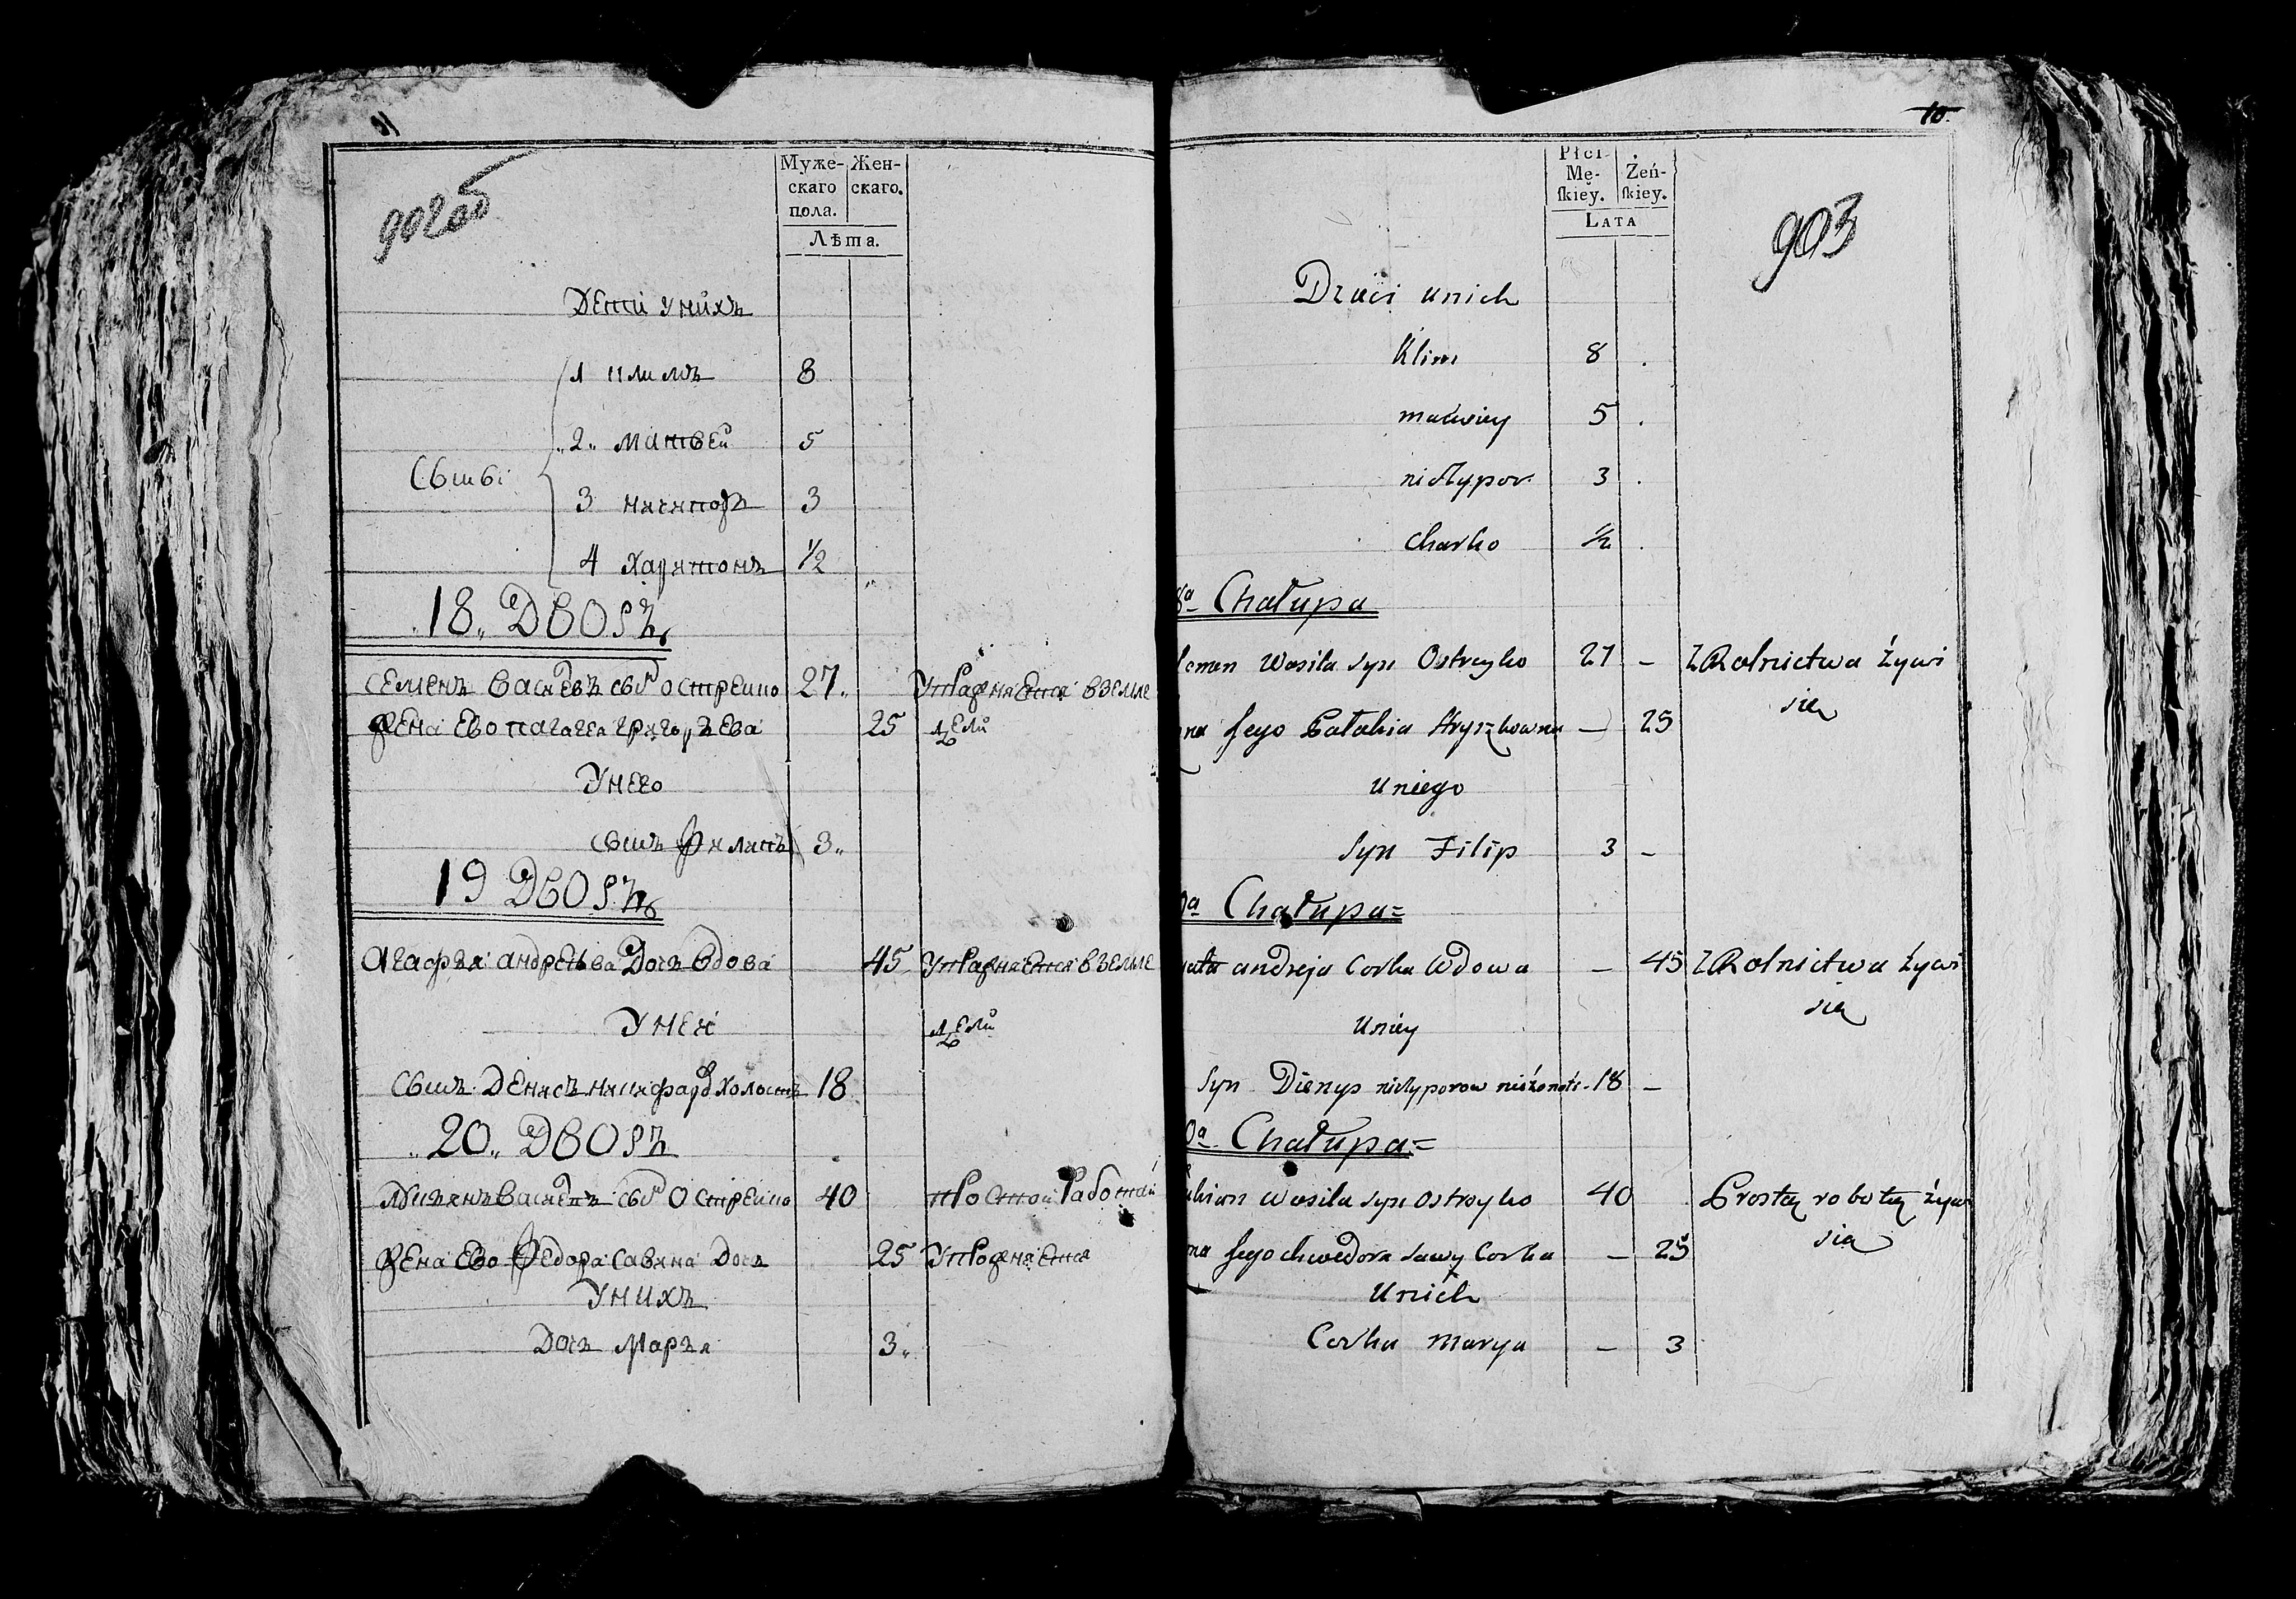 10
902об
Муже-
скаго
пола.
Жен-
скаго.
Лѣта.
Дети унихъ
1 климъ 8
2 Матвей 5
Сыны
3 нячяпоръ 3
4 Харятонъ 1/2
18 Дворъ
Семенъ Васяевъ сынъ остреико 27 Упражняется в земле
Жена Ево палагеа грягоръева 25 дели
Унего
Сынъ Филяпъ 3
19 Дворъ
Агафъя андреева Дочъ Вдова 45 Упражняется в земле
Унея дели
Сынъ Денясъ Холостъ 18
20 Дворъ
Васяевъ сынъ Остреико 40 простой Работай
Жена Ево Федора Савяна Дочъ 25 Упражняется
Унихъ
Дочъ Маръя 3
10.
903
Płci
Mę-
ſkiey.
Żeń-
ſkiey.
Lata
Dzieci unich
Klim 8
matwiey 5
niczypor 3
charko 1/2
8a Chałupa
emen Wasila syn Ostreyko 27 – Z Rolnictwa żywi
się
na jego Pałahia Hryszkowna – 25
Uniego
Syn Filip 3 –
a Chałupa =
gata andreja Corka Wdowa – 45 Z Rolnictwa żywi
się
Uniey
Syn Dienys niczyporow nieżonaty 18 –
0a Chałupa =
Wasila syn Ostreyko 40 Prostą robotą żywi
się
na jego chwedora Sawy Corka – 25
Unich
Corka Marya – 3